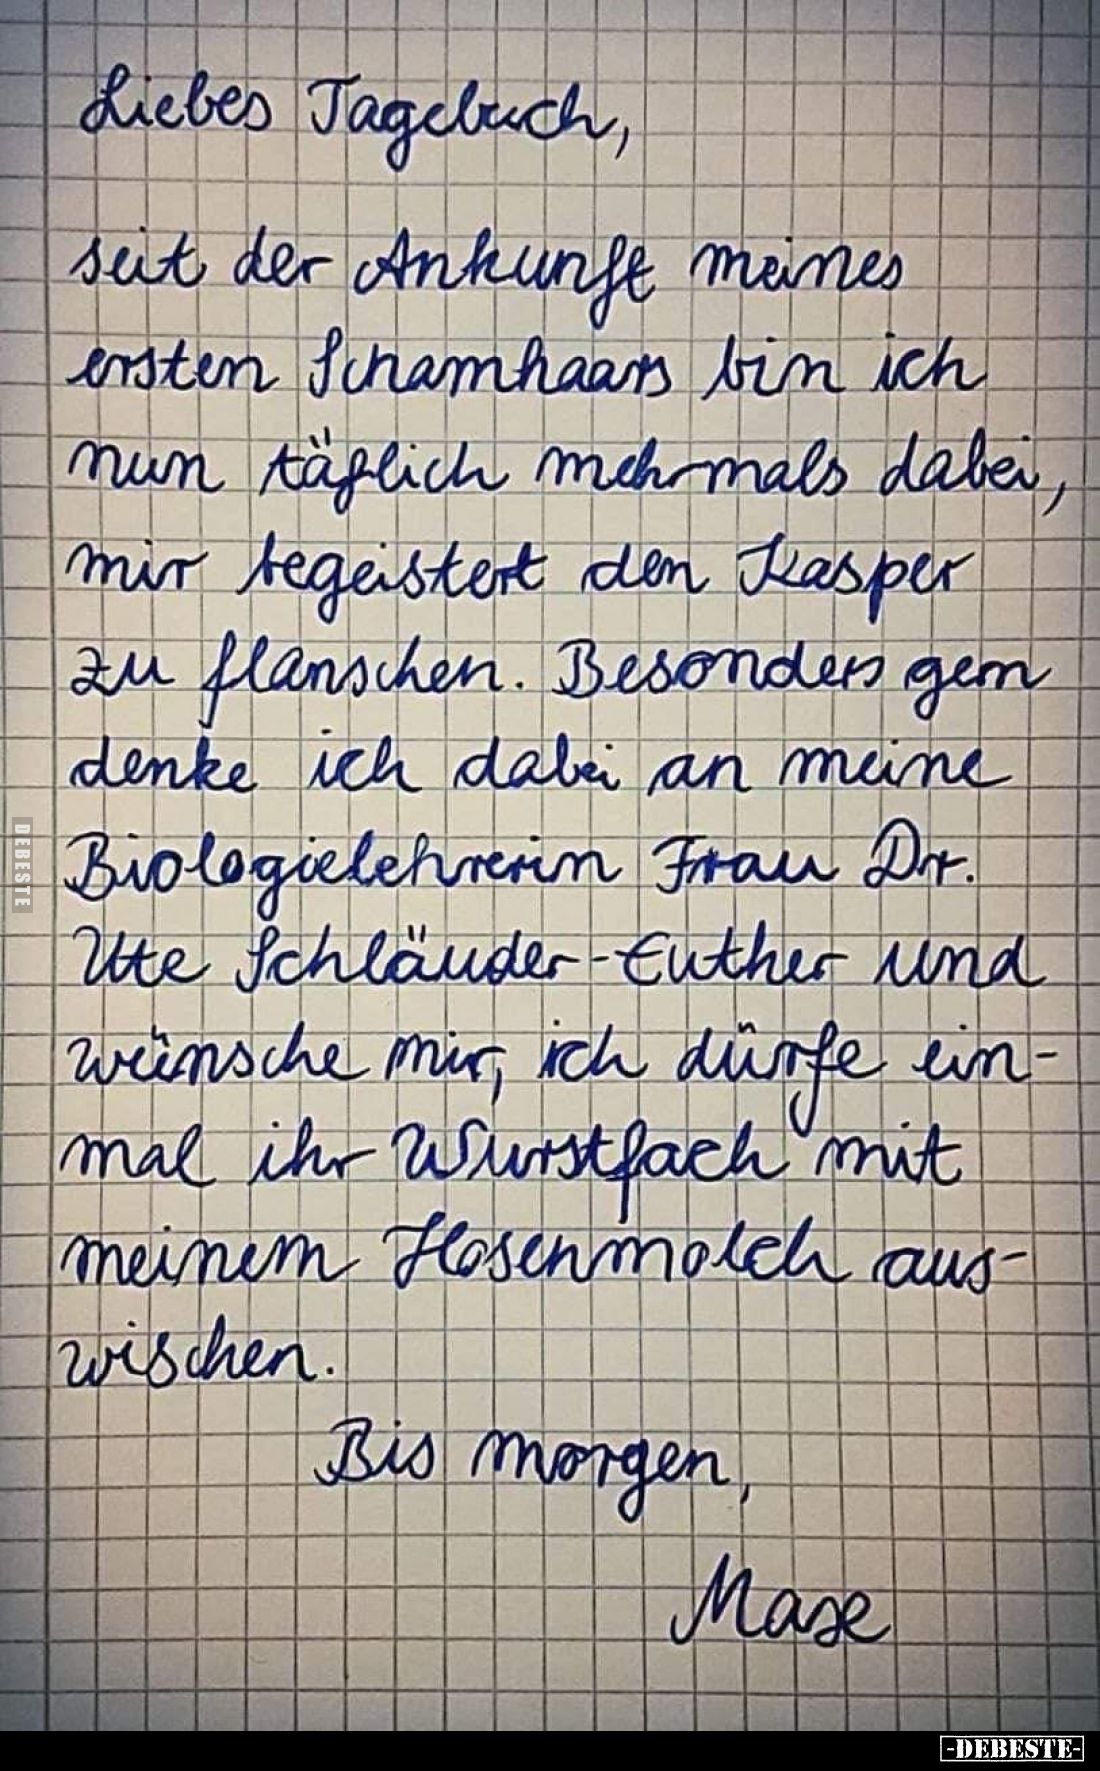 Liebes Tagebuch,
seit der Ankunft meines
ersten Schamhaars bin ich
nun täglich mehrmals dabei,
mir begeistert den Kasper
zu flanschen. Besonders gern
denke ich dabei an meine
Biologielehrerin Frau Dr.
Ute Schläuder-Euther und
wünsche mir, ich dürfe ein-
mal ihr Wurstfach mit
meinem Hosenmolch aus-
wischen.
Bis morgen,
Mase
DEBESTE
-DEBESTE-